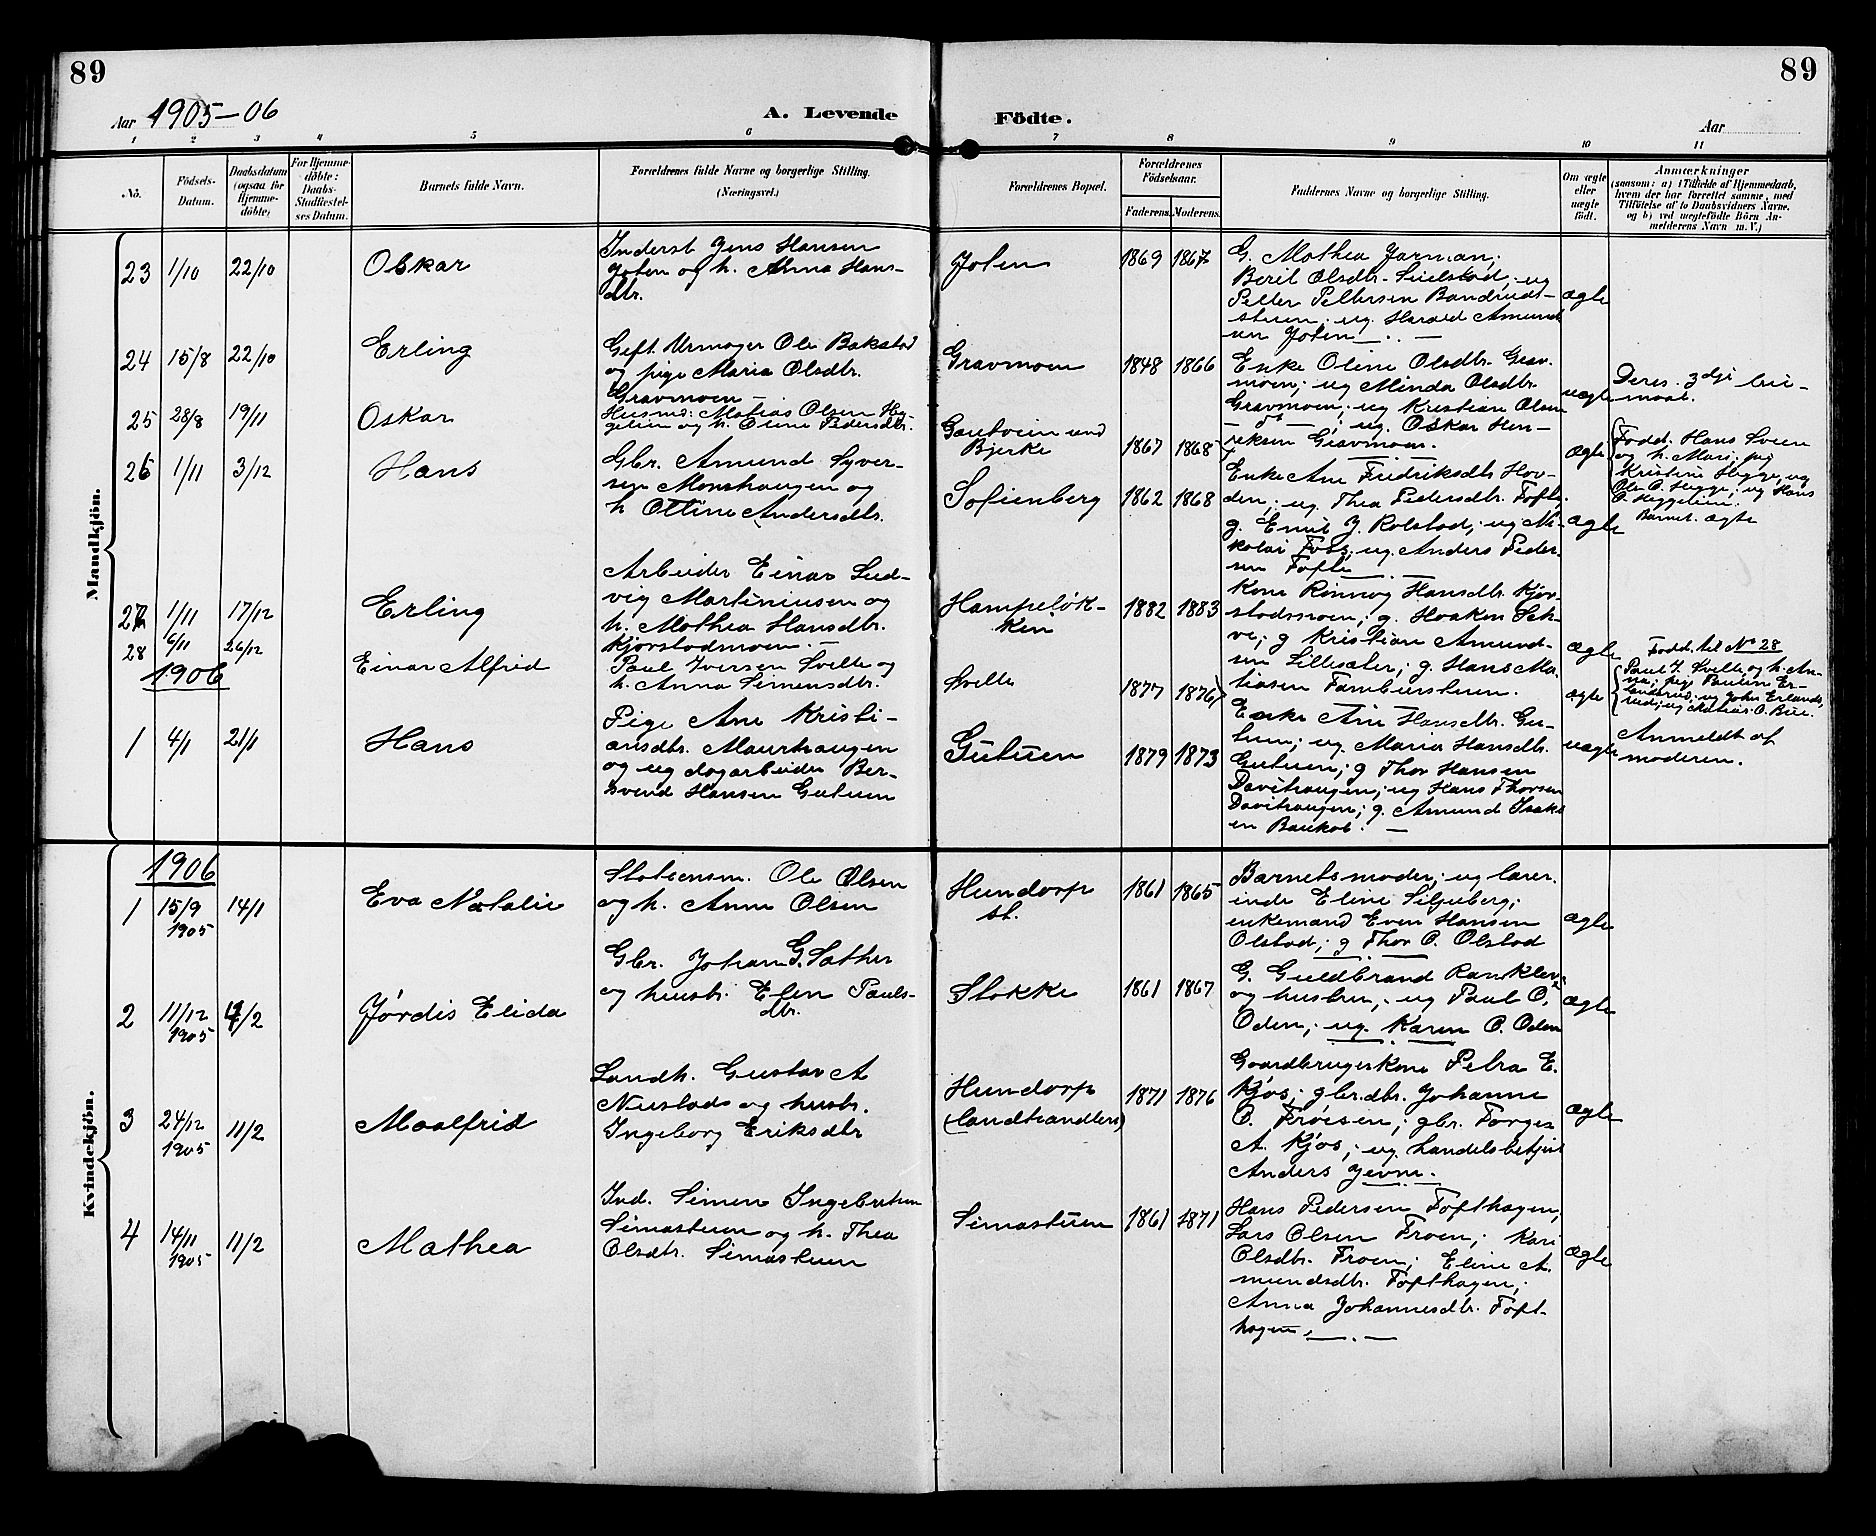 89
89
Aar 1905-06
A. Levende Födte.
Aar
1 2 3 4 5 6 7 8 9 10 11
No.
Födsels-Datum.
Daabsdatum (ogsaa for Hjemme-döbte)
For Hjemme-döbte: Daabs-Stadfæstel-ses Datum.
Barnets fulde Navn.
Forældrenes fulde Navne og borgerlige Stilling. (Næringsvei.)
Forældrenes Bopæl.
Forældrenes Födselsaar.
Faderens. Moderens.
Faddernes Navne og borgerlige Stilling.
Om ægte eller uægte födt.
Anmærkninger
(saasom: a) Tilfælde af Hjemmedaab,
hvem der har forrettet samme, med
Tilföielse af to Daabsvidners Navne.
og b) ved uægtefödte Börn An-
melderens Navn m. V.)
Mandkjön.
23 1/10 22/10
Oskar
Inderst Jens Hansen
Joten og h. Anna Hans-
dtr.
Joten
1869 1867
G. Mathea Jarman;
Berit Olsdtr. ug
Petter Pettersen
ug. Harald Amund
sen Joten
ægte
24 15/8 22/10
Erling
Geft. Urmager Ole Bakstad
og pige Maria Olsdtr.
Gravmoen
Gravmoen
1848 1866
Enke Oline Olsdtr. Grav-
moen; ug Minda Olsdtr.
Gravmoen; ug Kristian Olsen
dt ; ug. Oskar Hen-
riksen Gravmoen.
uægte
Deres 3dje leir-
maal.
25 28/8 19/11
Oskar
Husmd: Matias Olsen Hy-
gelien og h. Eline Pedersdtr.
Bjerke
1867 1868
ægte
Fadd. Hans Sveen
og h. Mari; pig
Kristine Hygge, ug
Ole O. Hygge; ug Hans
O. Heggelien.
Barnet ægte
26 1/11 3/12
Hans
Gbr. Amund Syver-
sen Monshaugen og
h Ottine Andersdtr.
Sofienberg
1862 1868
Enke Ane Fredriksdtr Hov-
den; ug. Thea Pedersdtr. Tofte;
g. Emil J. Rolstad; ug Ni-
kolai Foss; ug. Anders Peder-
sen Tofte
ægte
27 1/11 17/12
Erling
Arbeider Einar Lud-
vig Martiniusen og
h. Mathea Hansdtr.
Kjorstadmoen
Hampeløk-
ken
1882 1883
Kone Rønnog Hansdtr. Kjor-
stadmoen; g. Haaken Sch-
ve; g Kristian Amund-
sen Lillesæter; g. Hans Ma-
tiasen Tamburstuen.
ægte
28 6/11 26/12
Einar Alfred
Paul Iversen Svelle og
h. Anna Simensdtr.
Svelle
1877 1876
ægte
Fadd. til No 28
Paul I. Svelle og h. An-
na; pig Pauline Er-
landsrud; ug John Erlands-
rud; ug Matias O. Bue.
1906
1 4/1 21/1
Hans
Pige Ane Kristi-
ansdtr. Maurhaugen
og ug dagarbeider Ber-
svend Hansen Gutuen
Gutuen
1879 1873
Enke Ane Hansdtr. Gu-
tuen; ug. Maria Hansdtr.
Gutuen; g Thor Hansen
Davithaugen; ug Hans Thorsen
Davithaugen; g. Amund Isaks
en Baukol.
uægte
Anmeldt af
moderen.
Kvindekjön.
1906
1 15/9 1905 14/1
Eva Natalie
Stationsm. Ole Olsen
og h. Anna Olsen
Hundorp
st.
1861 1865
Barnets moder; ug lærer-
inde Eline Siljuberg;
enkemand Even Hansen
Olstad; g Thor O. Olstad
ægte
2 11/12 1905 4/2
Jørdis Elida
Gbr. Johan G. Sæther
og hustr. Elen Pauls-
dtr.
Stokke
1861 1867
G. Guldbrand Ranklev
og hustru; ug Paul O.
Oden; ug. Karen O. Oden
ægte
3 24/12 1905 11/2
Maalfrid
Landh. Gustav A
Neustad og hustr.
Ingeborg Eriksdtr
Hundorp
(landhandleri)
1871 1876
Gaardbrugerkone Petra E.
Kjøs; gbr.dtr. Johanne
O. Frøisen; gbr. Torger
A. Kjøs; ug. handelsbetjent
Anders Jevne.
ægte
4 14/11 1905 11/2
Mathea
Ind. Simen Ingebretsen
Simastuen og h. Thea
Olsdtr. Simastuen
Simastuen
1861 1871
Hans Pedersen Tofthagen;
Lars Olsen Froen; Kari
Olsdtr. Froen; Eline A-
mundsdtr. Tofthagen;
Anna Johannesdtr. Toft-
hagen,
ægte